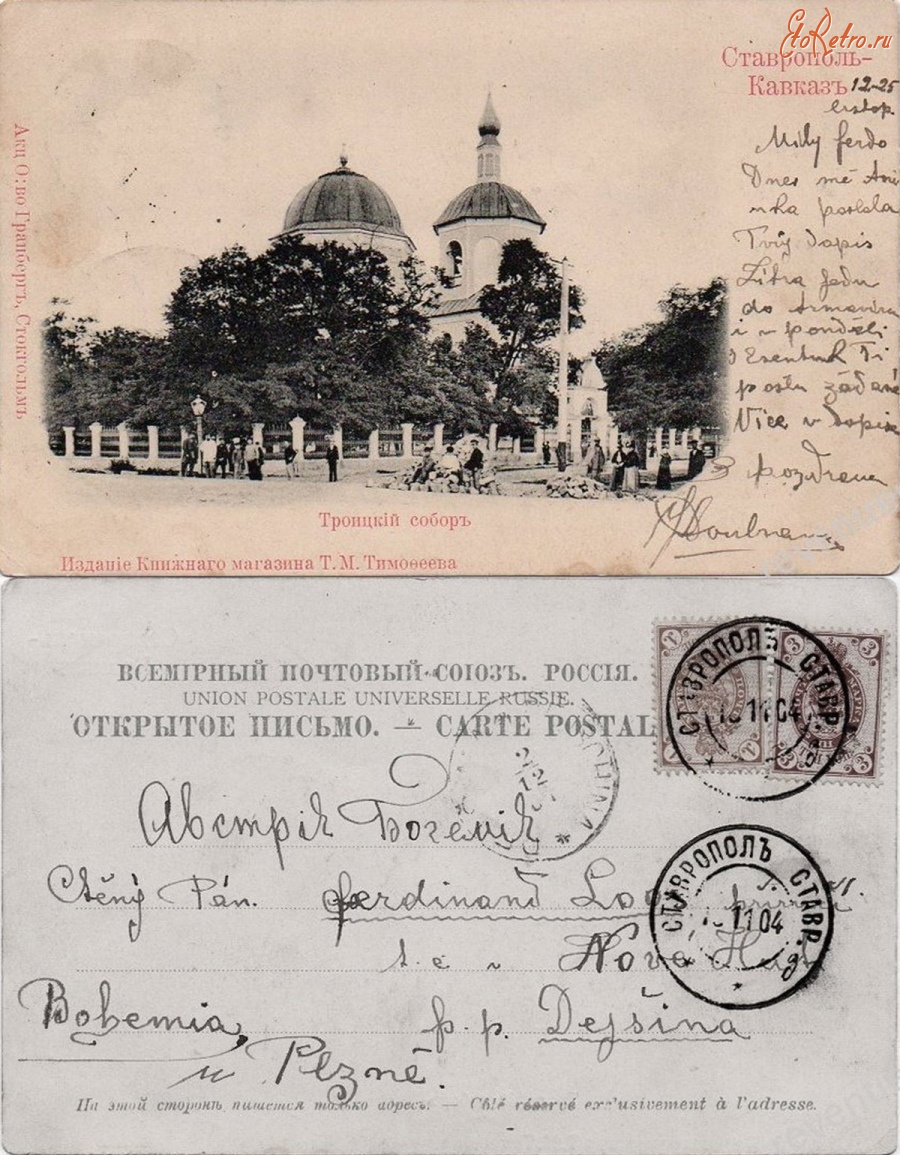 EtoRetro.ru
Ставрополь-
Кавказъ
12-25
listop.
Milý ferdo
Dnes mě Ani
nka poslala
Tvůj dopis
Zítra jedu
do Armavira
i v Pondělí
Ti
pošlu žádané
Více v dopise
pozdrav
Акц. О:во Гранбергъ, Стокгольмъ
Троицкій соборъ
Изданіе Книжнаго магазина Т. М. Тимоѳеева
ВСЕМІРНЫЙ ПОЧТОВЫЙ СОЮЗЪ. РОССІЯ.
UNION POSTALE UNIVERSELLE RUSSIE.
ОТКРЫТОЕ ПИСЬМО. — CARTE POSTAL
СТАВРОПОЛЬ СТАВР.
11 04
1 1
3 3
3 3
Австрія Богемія
Ctěný Pán. Ferdinand
t. č. v Nova
Bohemia, p. p. Dejšina
u Plzně.
СТАВРОПОЛЬ СТАВР.
11 04
На этой сторонѣ пишется только адресъ. — Côté réservé exclusivement à l'adresse.